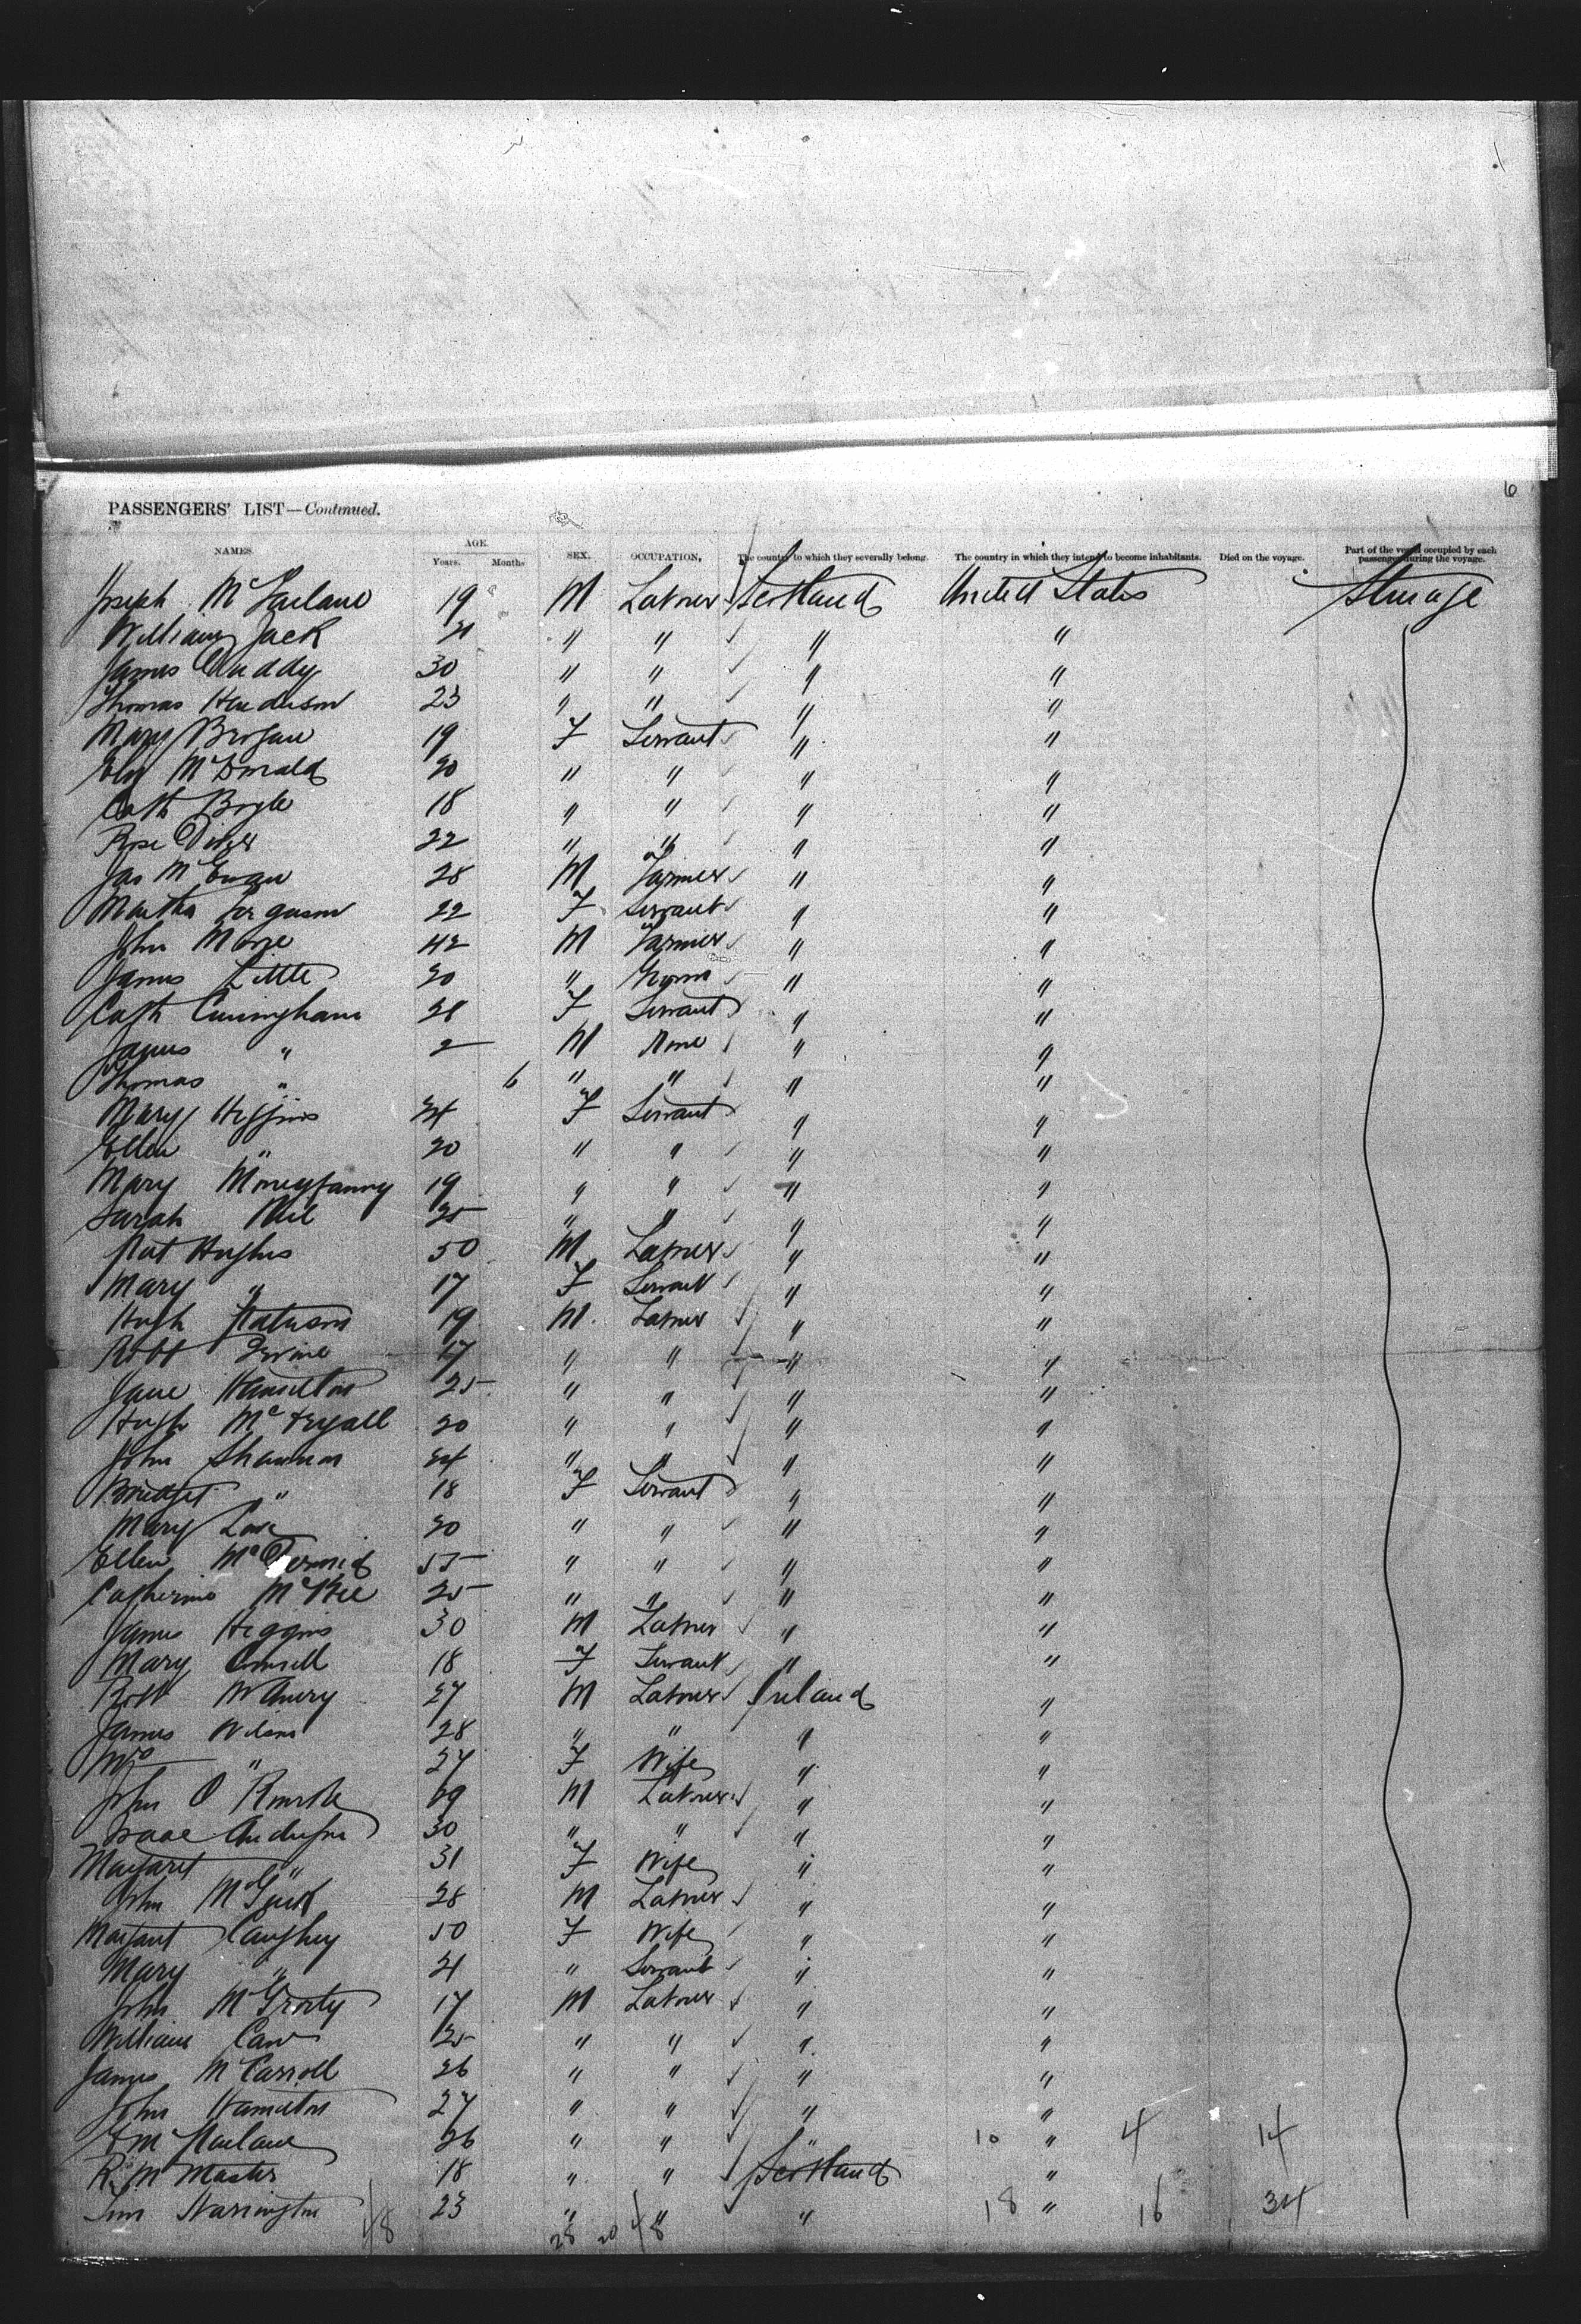 6
PASSENGERS' LIST—Continued.
NAMES. AGE. Years. Months SEX. OCCUPATION, The country to which they severally belong. The country in which they intend to become inhabitants. Died on the voyage. Part of the vessel occupied by each passenger during the voyage.
Joseph McFarlane 19 M Labourer Scotland United States Steerage
William Jack 21 " " " "
James Duddy 30 " " " "
Thomas Henderson 23 " " " "
Mary Brogan 19 F Servant " "
Eliz McDonald 20 " " " "
Cath Boyle 18 " " " "
Rose Diver 22 " " " "
Jas McEwan 28 M Farmer " "
Martha Ferguson 22 F Servant " "
John More 42 M Farmer " "
James Little 20 " Groom " "
Cath Cuningham 28 F Servant " "
James " 2 M None " "
Thomas " 6 " " " "
Mary Higgins 24 F Servant " "
Ellen " 20 " " " "
Mary Moneyfanny 19 " " " "
Sarah Neil 25 " " " "
Pat Hughes 50 M Labourer " "
Mary " 17 F Servant " "
Hugh Paterson 19 M Labourer " "
Robt Irvine 17 " " " "
Jane Hamilton 25 " " " "
Hugh Mc 20 " " " "
John Shannon 24 " " " "
Bridget " 18 F Servant " "
Mary Love 20 " " " "
Ellen McDermid 55 " " " "
Catherine McKee 25 " " " "
James Higgins 30 M Labourer " "
Mary Connell 18 F Servant " "
Robt 27 M Labourer Ireland "
James Wilson 28 " " " "
Mrs " 27 F Wife " "
John O'Rourke 69 M Labourer " "
Isaac Anderson 30 " " " "
Margaret " 31 F Wife " "
John McGurk 28 M Labourer " "
Margaret Caughey 50 F Wife " "
Mary " 21 " Servant " "
John McGrorty 17 M Labourer " "
William Caw 25 " " " "
James McCarroll 26 " " " "
John Hamilton 27 " " " "
26 " " " 10 " 4 14
R. McMaster 18 " " Scotland "
Harrington 23 " " " 18 " 16 34
48 28 20 48